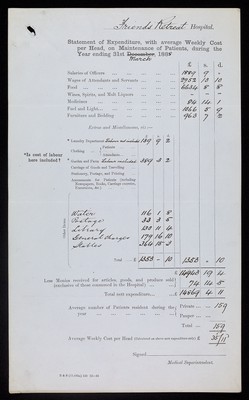 Friends Retreat Hospital.
Statement of Expenditure, with average Weekly Cost
per Head, on Maintenance of Patients, during the
Year ending 31st December, 189
March
£ s. d.
Salaries of Officers 1809 9 -
Wages of Attendants and Servants 2952 18 10
Food
Wines, Spirits, and Malt Liquors
Medicines 84 14 1
Fuel and Light 1066 5 9
Furniture and Bedding 963 7 2
Extras and Miscellaneous, viz.:—
*Is cost of labour
here included?
* Laundry Department 189 9 2
Clothing
Patients
Attendants
* Garden and Farm 389 3 2
Carriage of Goods and Travelling
Stationery, Postage, and Printing
Amusements for Patients (including
Newspapers, Books, Carriage exercise,
Excursions, &c.)
Other Items.
Water 116 1 8
Postage 33 3 6
Library
General charges 179 16 10
Stables 364 15 3
Total £ 1353 - 10 1353 - 10
£ 14943 19 4
Less Monies received for articles, goods, and produce sold
(exclusive of those consumed in the Hospital) £ 74 14 5
Total nett expenditure £ 14869 4 11
Average number of Patients resident during the
year
Private 159
Pauper
Total 159
Average Weekly Cost per Head £
Signed
Medical Superintendent.